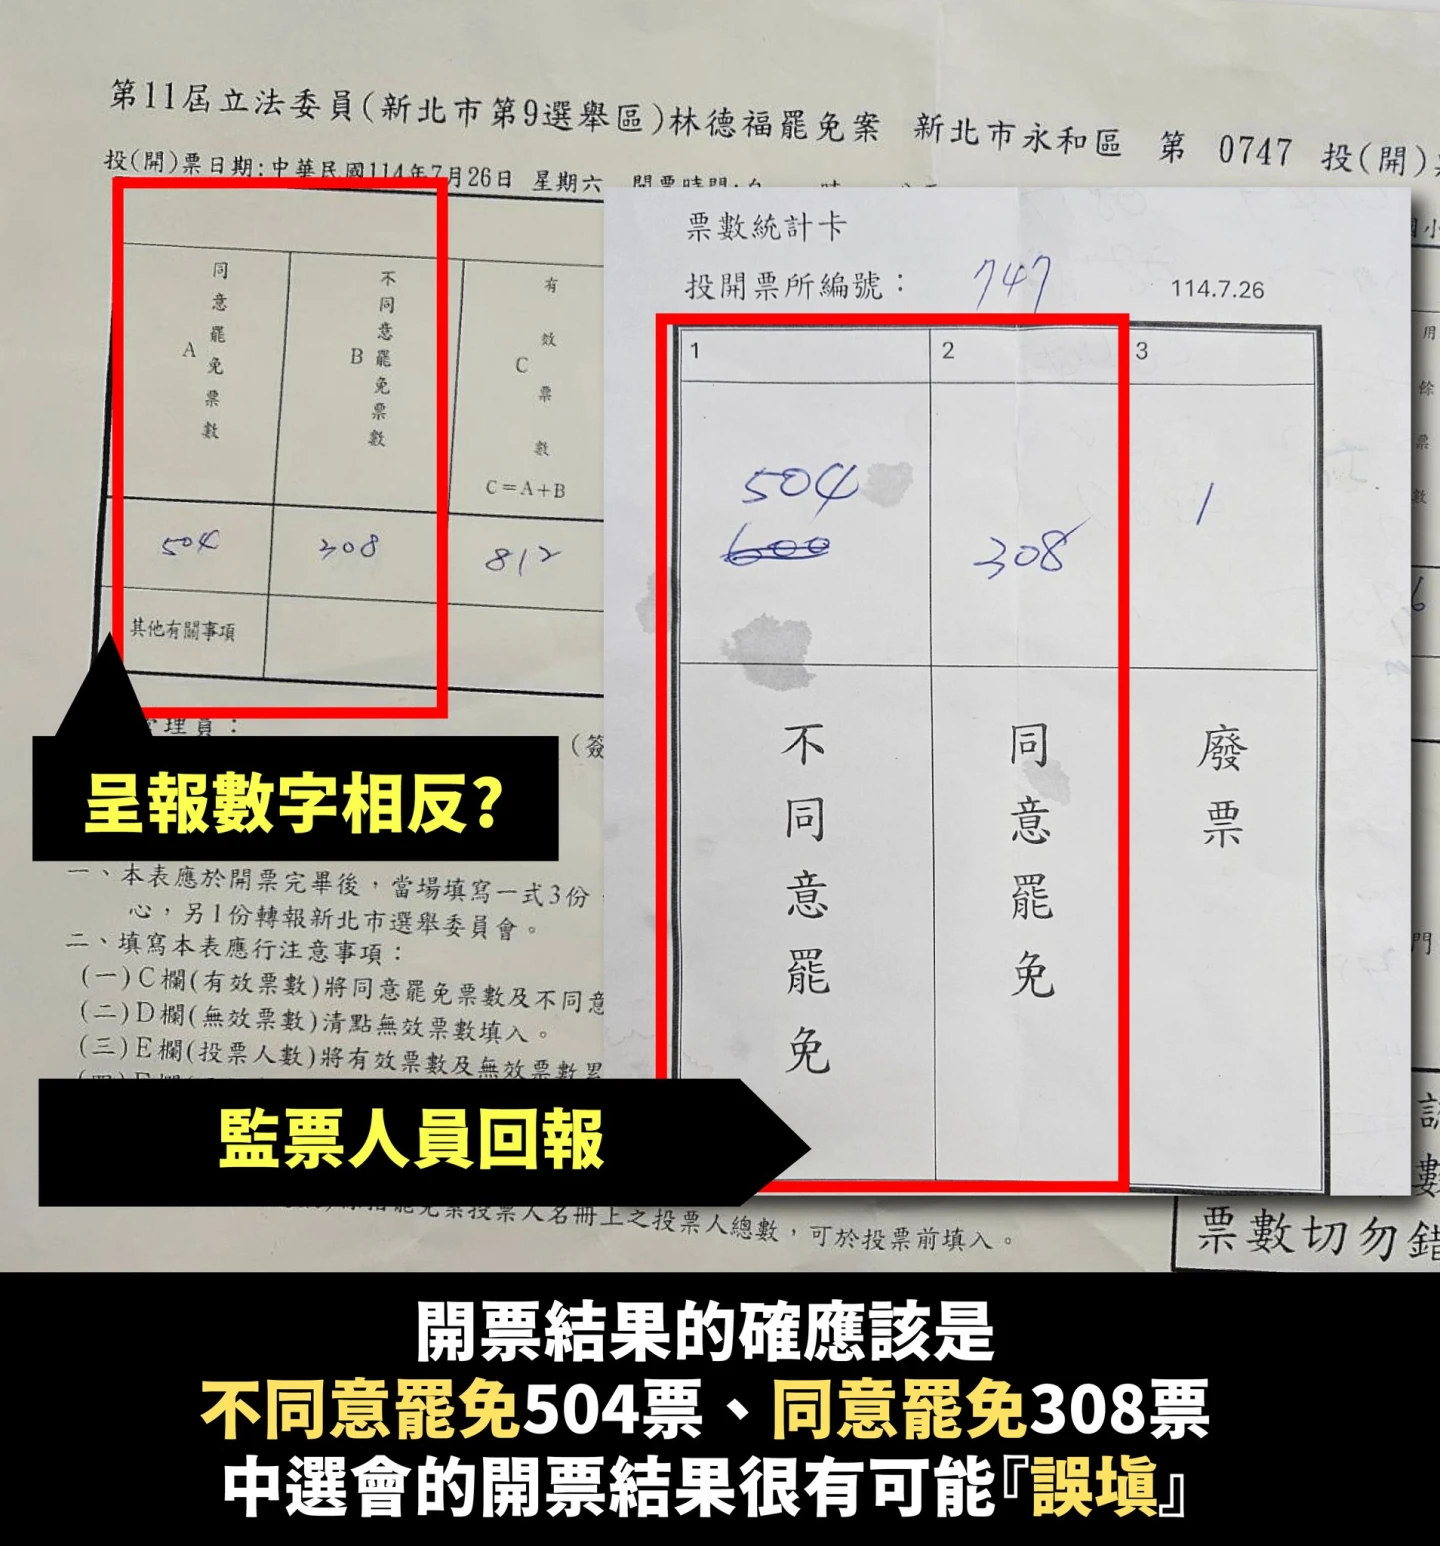 第11屆立法委員(新北市第9選舉區)林德福罷免案 新北市永和區 第 0747 投(開)
投(開)票日期:中華民國114年7月26日 星期六 開票時間:自
同意罷免票數
A
不同意罷免票數
B
有效票數
C
C=A+B
504
308
812
其他有關事項
管理員：
(簽
呈報數字相反?
一、本表應於開票完畢後，當場填寫一式3份，
心，另1份轉報新北市選舉委員會。
二、填寫本表應行注意事項：
(一)C欄(有效票數)將同意罷免票數及不同意
(二)D欄(無效票數)清點無效票數填入。
(三)E欄(投票人數)將有效票數及無效票數累
票數統計卡
投開票所編號：
747
114.7.26
1
2
3
504
600
308
1
不同意罷免
同意罷免
廢票
用餘票數
監票人員回報
罷免案投票人名冊上之投票人總數，可於投票前填入。
票數切勿錯
開票結果的確應該是
不同意罷免504票、同意罷免308票
中選會的開票結果很有可能『誤塡』